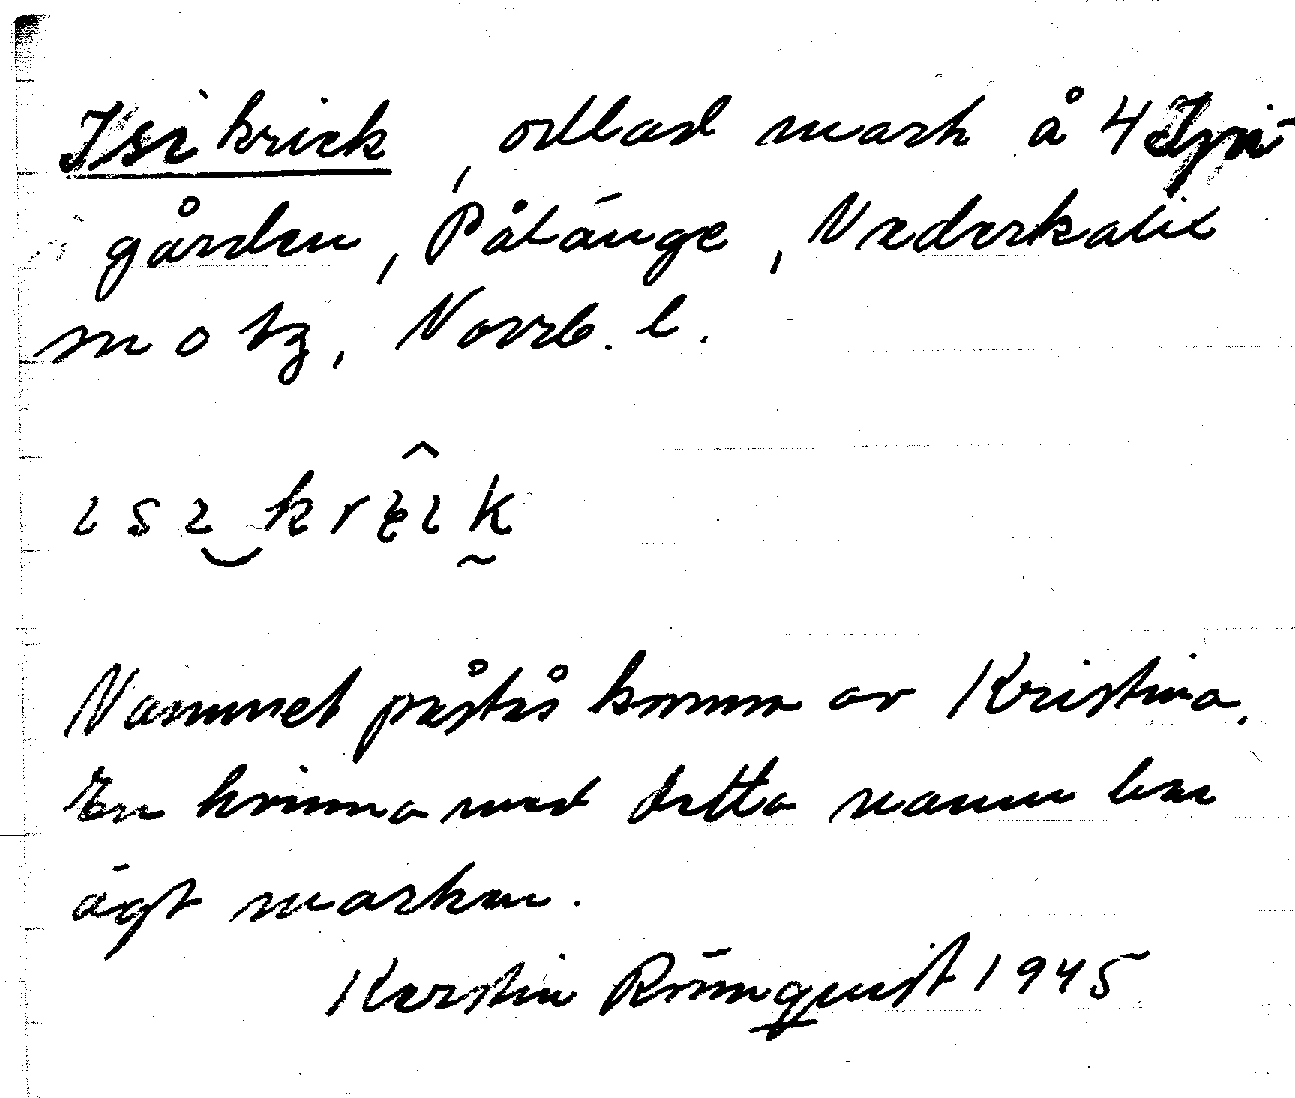 Isikrick, odlad mark å 4
gården, Pålänge, Nederkalix
m o tg, Norrb. l.
Nammet påstås komma av Kristina.
En kvinna med detta namn har
ägt marken.
Kerstin Rönnquist 1945